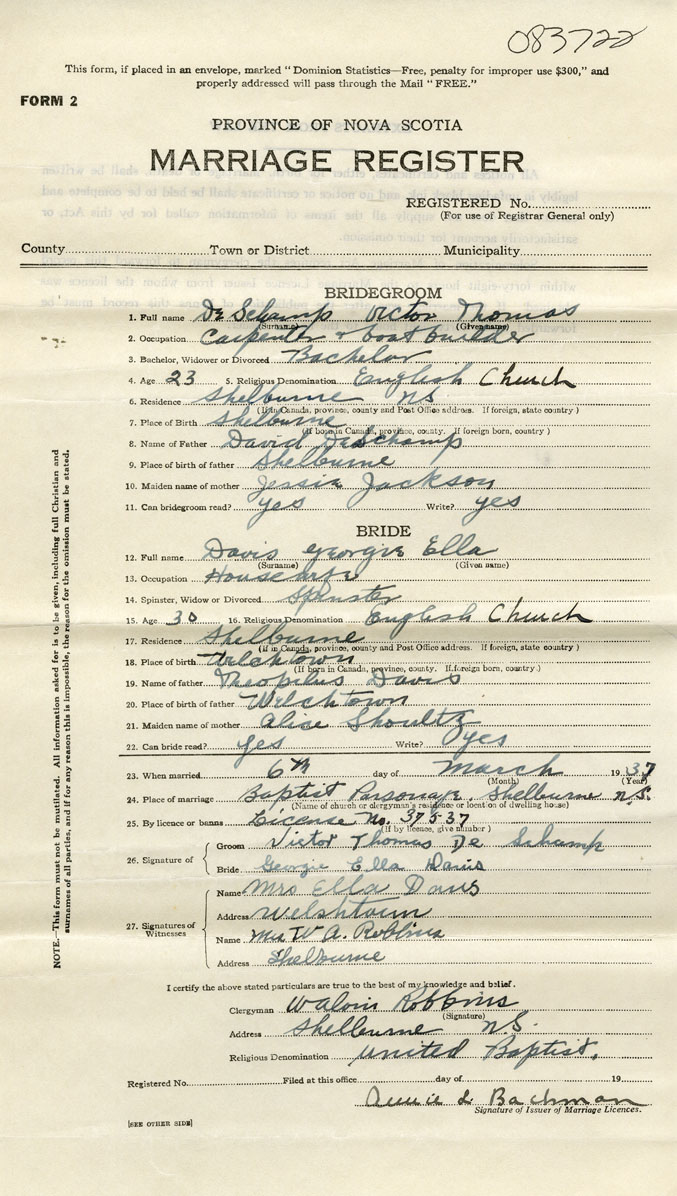 083722
This form, if placed in an envelope, marked "Dominion Statistics—Free, penalty for improper use $300," and
properly addressed will pass through the Mail "FREE."
FORM 2
PROVINCE OF NOVA SCOTIA
MARRIAGE REGISTER
REGISTERED No.
(For use of Registrar General only)
County Town or District Municipality
BRIDEGROOM
1. Full name De Schamp Victor Thomas
(Surname) (Given name)
2. Occupation Carpenter & boat builder
3. Bachelor, Widower or Divorced Bachelor
4. Age 23 5. Religious Denomination English Church
6. Residence Shelburne NS
(If in Canada, province, county and Post Office address. If foreign, state country)
7. Place of Birth Shelburne
(If born in Canada, province, county. If foreign born, country)
8. Name of Father David DeSchamp
9. Place of birth of father Shelburne
10. Maiden name of mother Jessie Jackson
11. Can bridegroom read? yes Write? yes
BRIDE
12. Full name Davis Georgie Ella
(Surname) (Given name)
13. Occupation Housework
14. Spinster, Widow or Divorced Spinster
15. Age 30 16. Religious Denomination English Church
17. Residence Shelburne
(If in Canada, province, county and Post Office address. If foreign, state country)
18. Place of birth Welchtown
(If born in Canada, province, county. If foreign born, country.)
19. Name of father Theopilus Davis
20. Place of birth of father Welchtown
21. Maiden name of mother Alice Shoultz
22. Can bride read? yes Write? yes
23. When married 6th day of March 1937
(Month) (Year)
24. Place of marriage Baptist Parsonage, Shelburne N.S.
(Name of church or clergyman's residence or location of dwelling house)
25. By licence or banns License No. 37537
(If by licence, give number)
26. Signature of
Groom Victor Thomas De Schamp
Bride Georgie Ella Davis
27. Signatures of Witnesses
Name Mrs Ella Davis
Address Welshtown
Name Mrs W A. Robbins
Address Shelburne
I certify the above stated particulars are true to the best of my knowledge and belief.
Clergyman Robbins
(Signature)
Address Shelburne N.S.
Religious Denomination United Baptist.
Registered No. Filed at this office day of 19
Annie L Bachman
Signature of Issuer of Marriage Licences.
[SEE OTHER SIDE]
NOTE.—This form must not be mutilated. All information asked for is to be given, including full Christian and
surnames of all parties, and if for any reason this is impossible, the reason for the omission must be stated.